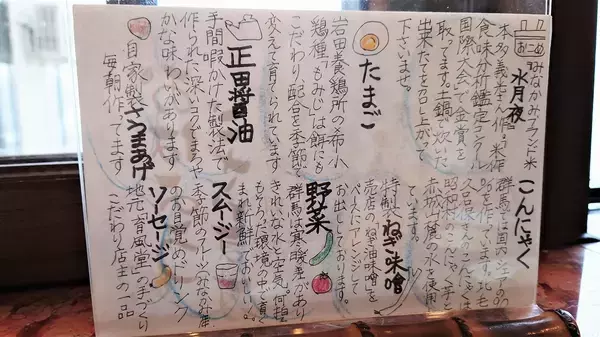 おこめ
みなかみブランド米
水月夜
本多義光さん作。米作
食味分析鑑定コンクール
国際大会で金賞を
取ってます。土鍋で炊いた
出来たてを召し上がって
下さいませ。
たまご
岩田養鶏所の希小
鶏種「もみじ」は餌にも
こだわり配合を季節で
変えて育てられてます
正田醤油
手間暇かけた製法で
作られた深いうまでまろや
かな味わいがあります
自家製さつまあげ
毎朝作ってます
こんにゃく
群馬では国内シェアの90
%を作ています。北毛
久呂保さんのこんにゃくは
昭和村のこんにゃく芋と
赤城山麓の水を使用
しています。
特製ねぎ味噌
売店のねぎ油味噌を
ベースにアレンジして
お出ししております。
野菜
群馬は寒暖差があり
きれいな水と空気。何拍
もそろた環境の中で育く
まれ新鮮でおいしい。
スムージー
季節のフルーツとみなかみ産
のお目覚めドリンク
ソーセージ
地元「育風堂」の手づくり
こだわり店主の一品